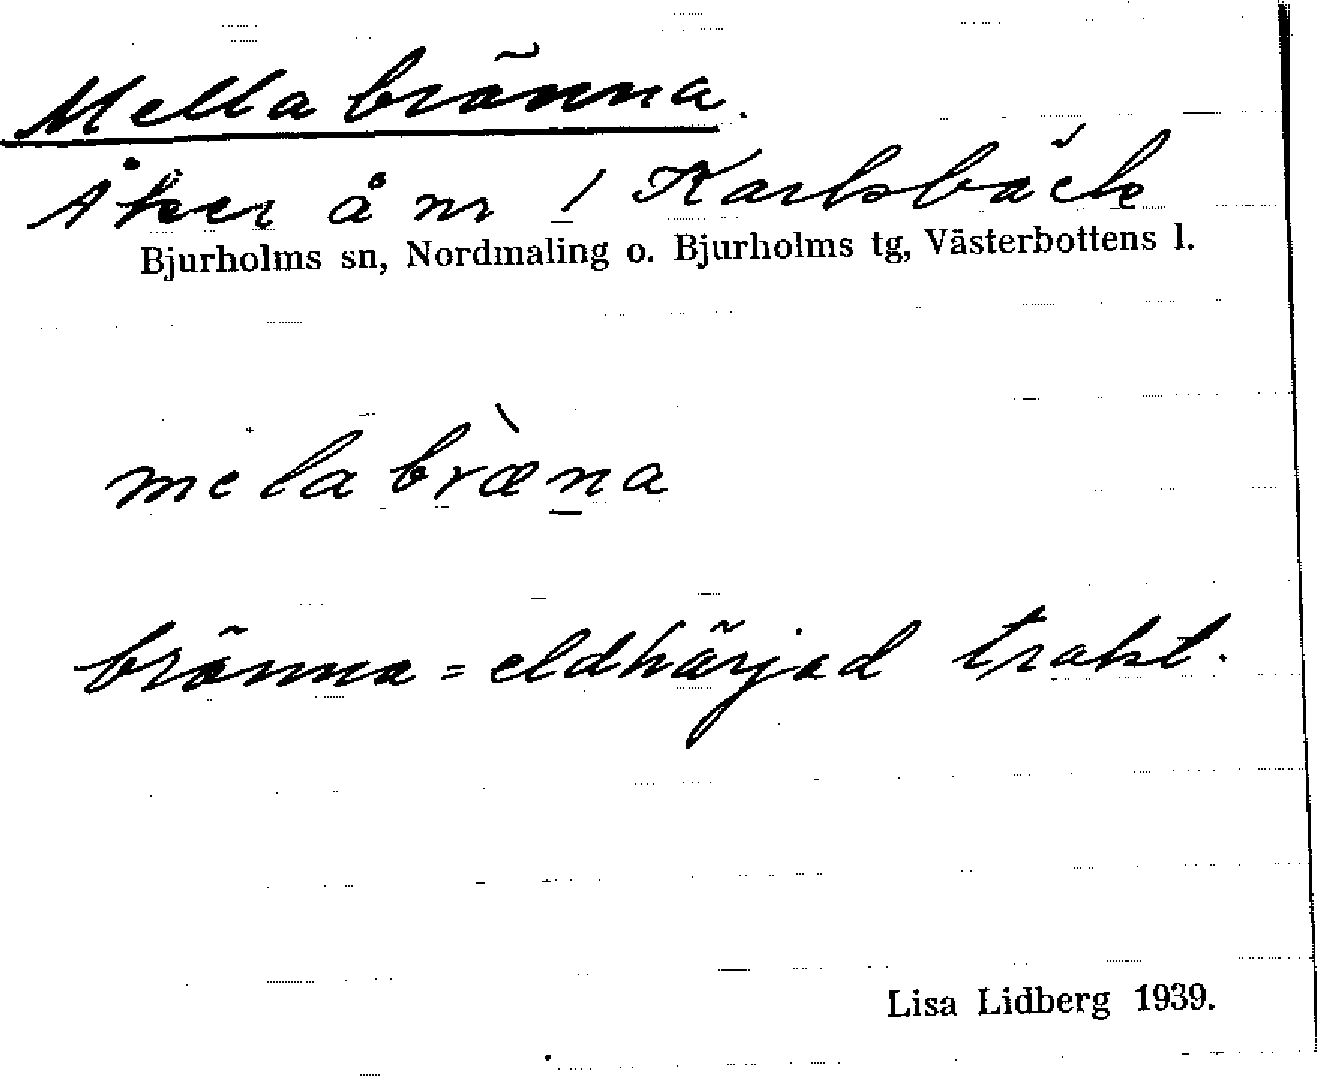 Mellabränna.
Åker å nr 1 Karlsbäck
Bjurholms sn, Nordmaling o. Bjurholms tg, Västerbottens l.
melabræ̀na
bränna = eldhärjad trakt.
Lisa Lidberg 1939.